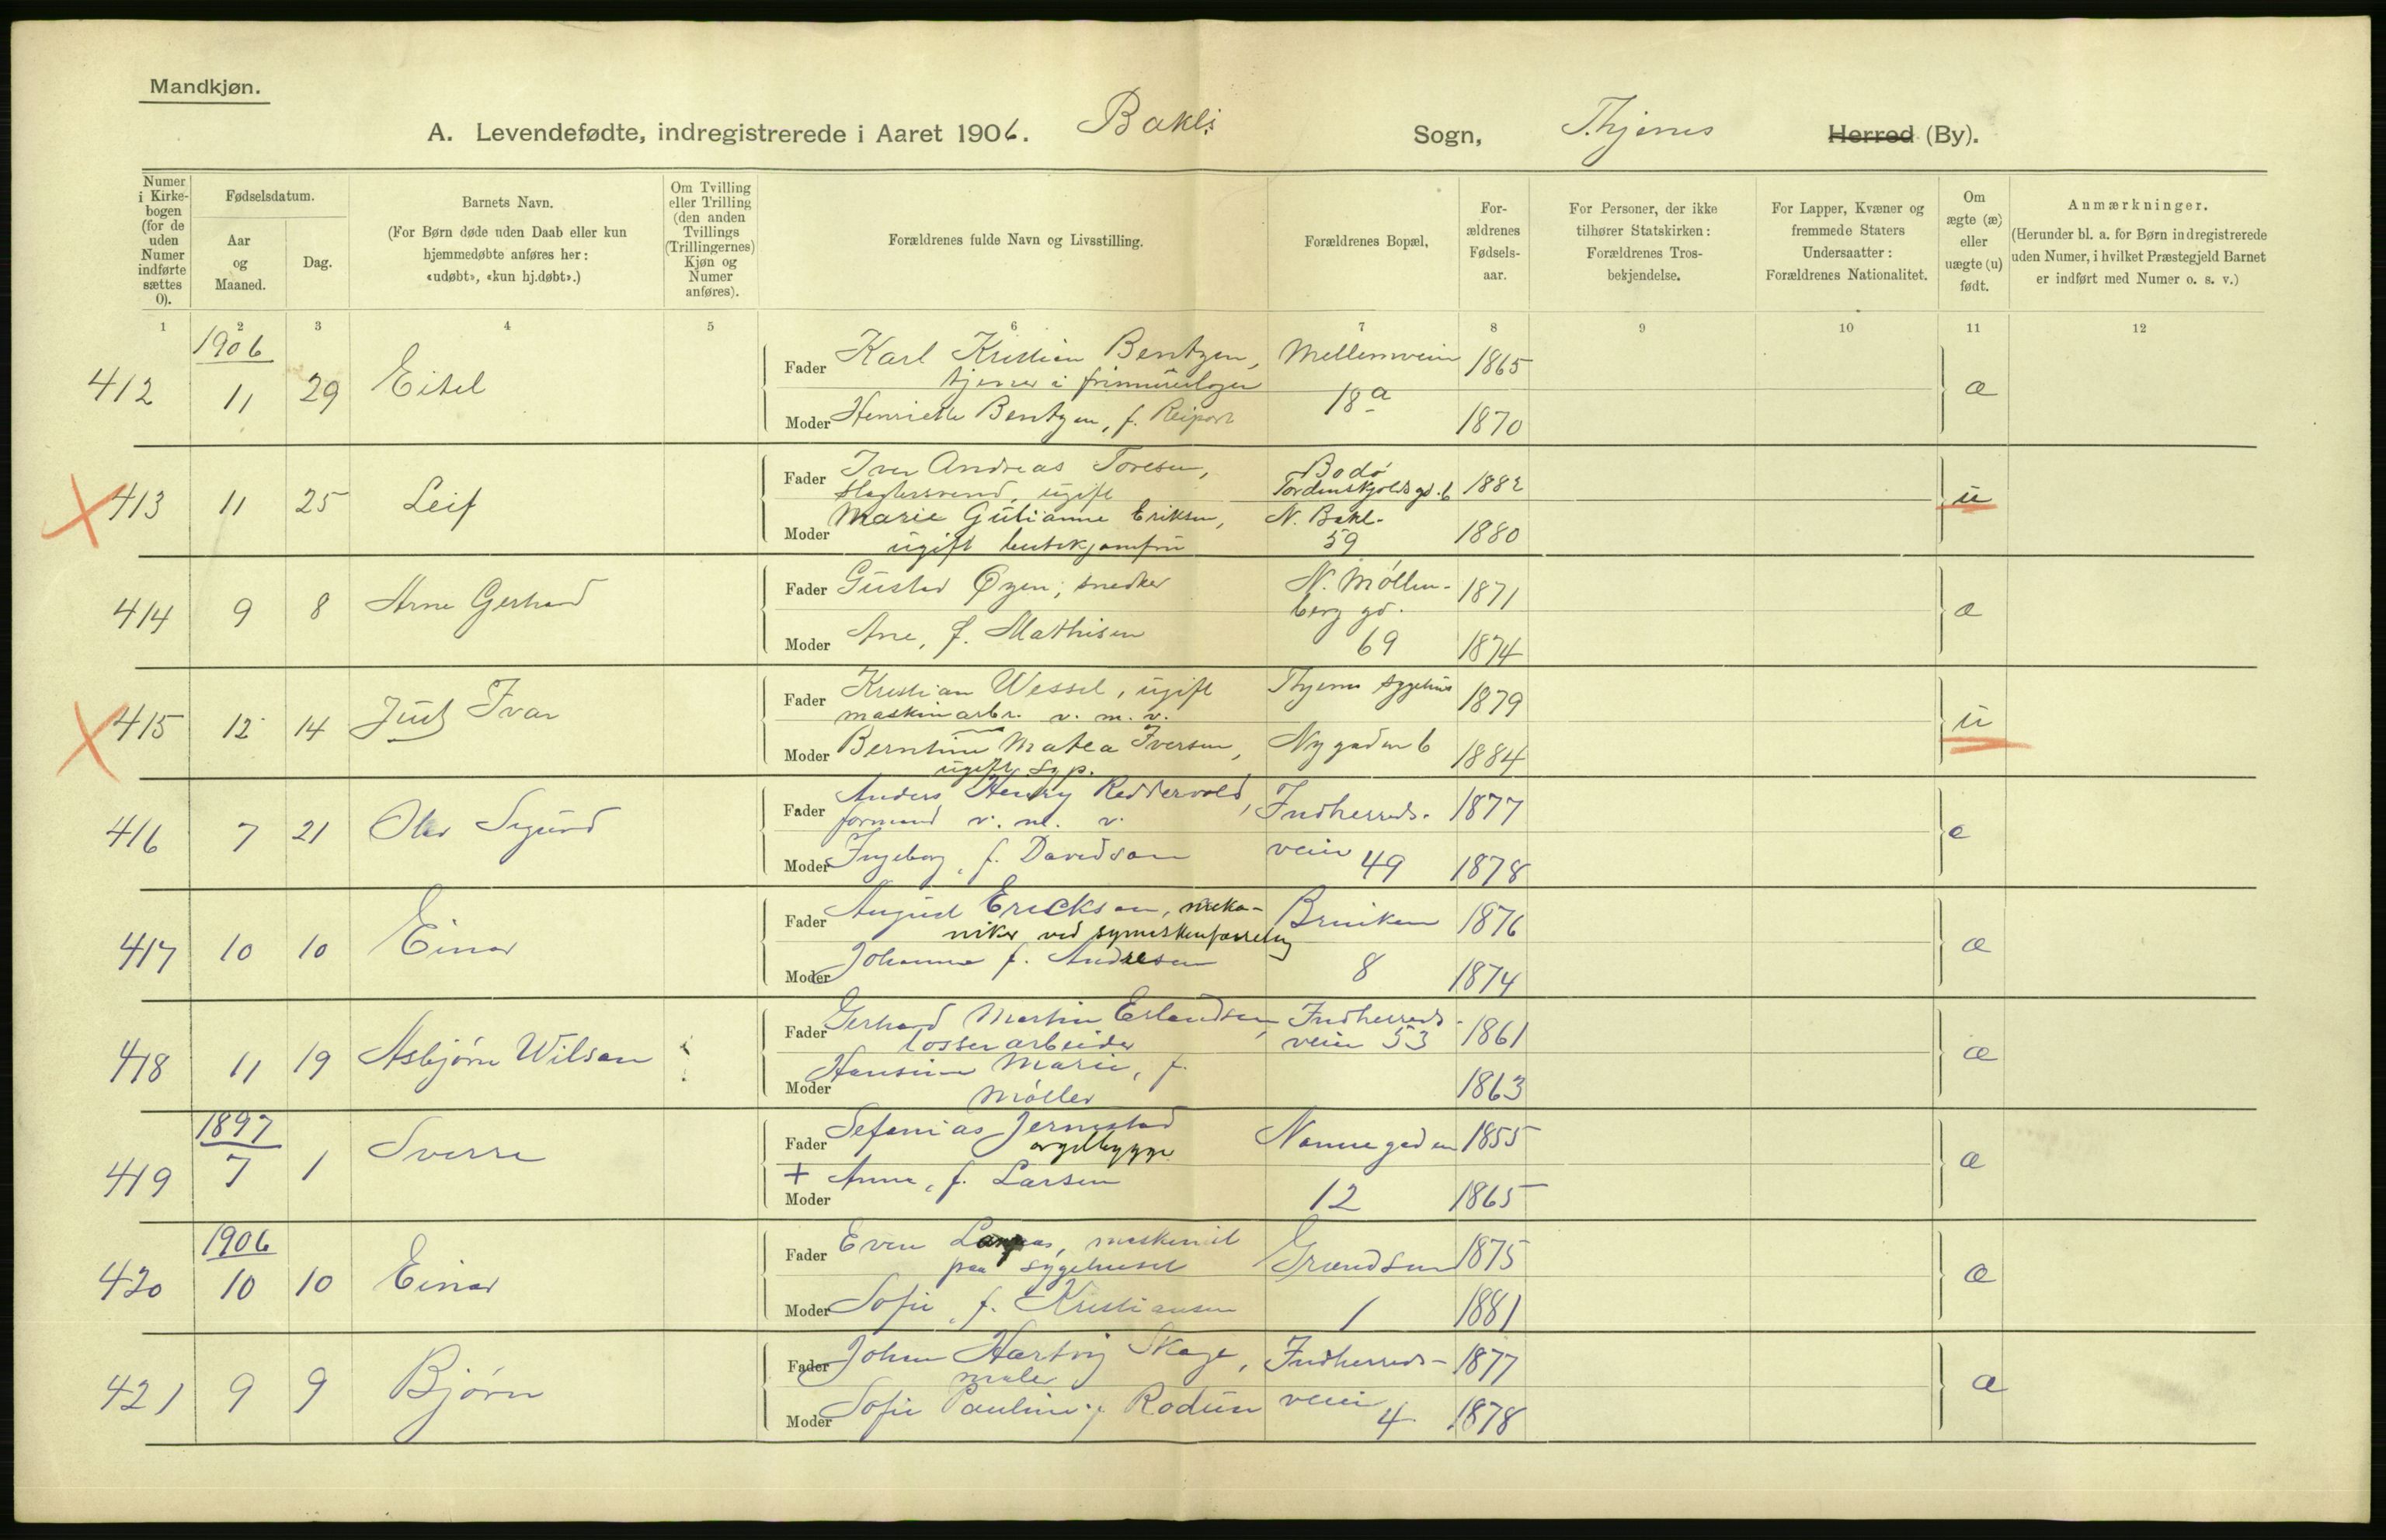 Mandkjøn.
A. Levendefødte, indregistrerede i Aaret 1906. Bakl: Sogn, Thjems Herred (By).
Numer i Kirke-bogen (for de uden Numer indførte sættes 0).
Fødselsdatum.
Aar og Maaned.
Dag.
Barnets Navn.
(For Børn døde uden Daab eller kun hjemmedøbte anføres her: «udøbt», «kun hj.døbt».)
Om Tvilling eller Trilling (den anden Tvillings (Trillingernes) Kjøn og Numer anføres).
Forældrenes fulde Navn og Livsstilling.
Forældrenes Bopæl,
For-ældrenes Fødsels-aar.
For Personer, der ikke tilhører Statskirken: Forældrenes Tros-bekjendelse.
For Lapper, Kvæner og fremmede Staters Undersaatter: Forældrenes Nationalitet.
Om ægte (æ) eller uægte (u) født.
Anmærkninger.
(Herunder bl. a. for Børn indregistrerede uden Numer, i hvilket Præstegjeld Barnet er indført med Numer o. s. v.)
1 2 3 4 5 6 7 8 9 10 11 12
1906
412 11 29 Eitel Fader Karl Kristian Bentzen, Mellemveien 1865 æ
tjener i frimurerlogen 18a
Moder Henriette Bentzen, f. 1870
413 11 25 Leif Fader Iver Andreas Toresen, Bodø 1882 u
slagtersvend, ugift Tordenskjolds gd. 6
Moder Marie Gulianne Eriksen, N. Bakl. 1880
ugift butikjomfru 59
414 9 8 Arne Gerhard Fader Gustav Øzen, snedker N. Møllen- 1871 æ
berg gd.
Moder Ane, f. Mathisen 69 1874
415 12 14 Just Ivar Fader Kristian Wessel, ugift Thjems sygehus 1879 u
maskinarbr. v. m. v.
Moder Berntine Matea Iversen, Nygaden 6 1884
ugift syp.
416 7 21 Olav Sigurd Fader Anders Henry Reddervold, Indherreds- 1877 æ
formand v. m. v.
Moder Ingeborg, f. Davidsen veien 49 1878
417 10 10 Einar Fader August Erickson, meka- Bruniken 1876 æ
niker ved symaskinforretng
Moder Johanna f. Andresen 8 1874
418 11 19 Asbjørn Wilson Fader Gerhard Martin Erlandsen, Indherreds- 1861 æ
losserarbeider veien 53
Moder Hansine Marie, f. 1863
Møller
1897
419 7 1 Sverre Fader Sefanias Jernstad Nonnegaden 1855 æ
orgelbygger
+ Moder Anna, f. Larsen 12 1865
1906
420 10 10 Einar Fader Even maskinist 1875 æ
paa sygehuset
Moder Sofie, f. Kristiansen 1 1881
421 9 9 Bjørn Fader Johan Hartvig Skage, Indherreds- 1877 æ
maler
Moder Sofie Pauline f. Rodun veien 4 1878